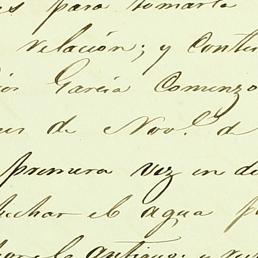 para tomarle
relación; y conti
García Comenzo
de Nov.^e de
primera vez en d
echar el agua p
antiguo; y